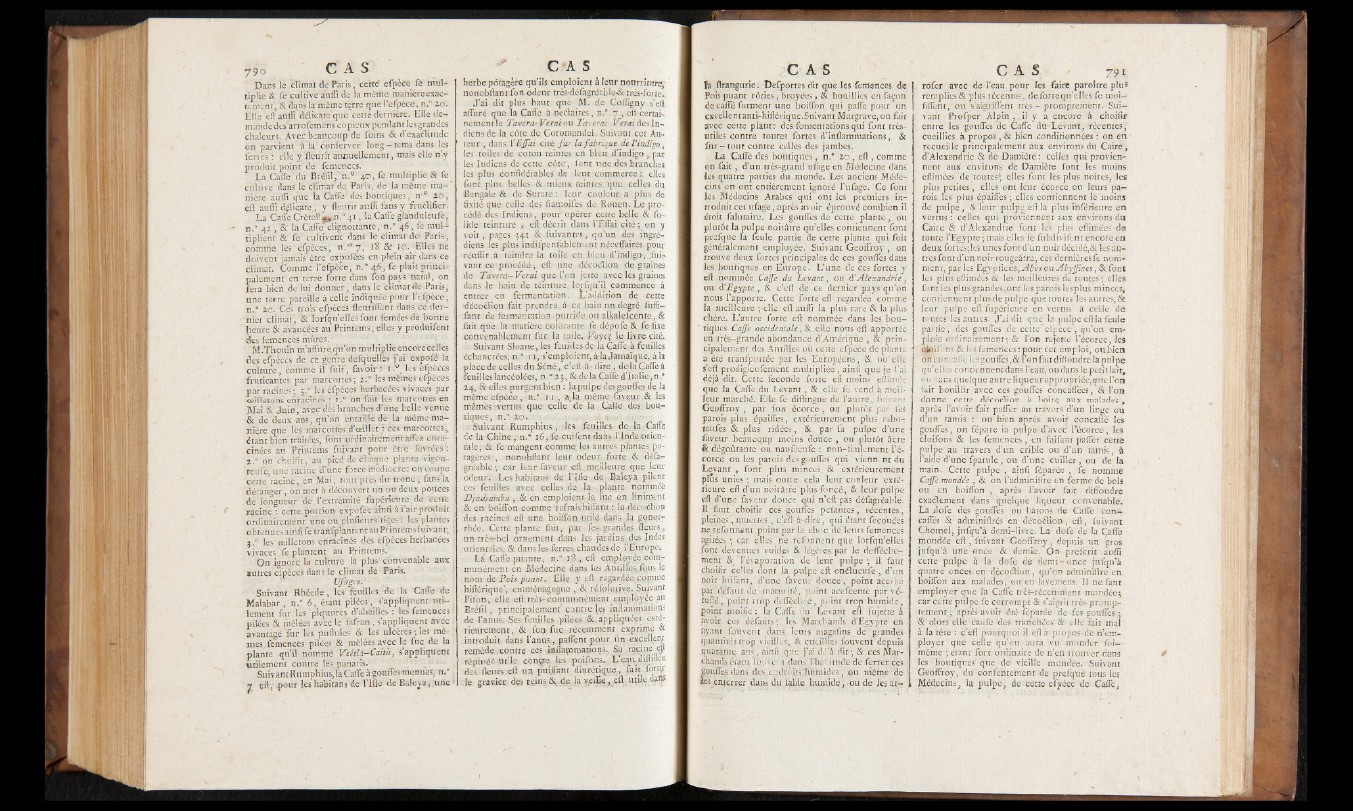 790 C A S
Dans le climat de Paris, cette espèce se mul-
tiplie & se cultive aussi de la même manière exac-
tement, & dans la même terre que l'espèce, n.° 20.
Elle est aussi délicate que cette dernière. Elle de-
mande des arrosemens copieux pendant les grandes
chaleurs. Avec beaucoup de soins & d'exactitude
on parvient à la conserver long-tems dans les
serres : elle y fleurit annuellement, mais elle n'y
produit point de semences.
La Casse du Brésil, n.° 40, se multiplie & se
cultive dans le climat de Paris, de la même ma-
nière aussi que la Casse des boutiques, n° 20,
est aussi délicate, y fleurit aussi sans y fructifier.
La Casse Crételle, n.° 41, la Casse glanduleuse,
n.° 42, & la Casse clignottante, n.° 46, se mul-
tiplient & se cultivent dans le climat de Paris,
comme les espèces, n.os 7, 18 & 10. Elles ne
doivent jamais être exposées en plein air dans ce
climat. Comme l'espèce, n.° 46, se plait princi-
palement en terre forte dans son pays natal, on
fera bien de lui donner, dans le climat de Paris,
une terre pareille à celle indiquée pour l'espèce,
n.° 20. Ces trois espèces fleurissent dans ce der-
nier climat, & lorsqu'elles sont semées de bonne
heure & avancées au Printems, elles y produisent
des semences mûres.
M. Thouin m'assure qu'on multiplie encore celles
des espèces de ce genre desquelles j'ai exposé la
culture, comme il suit, savoir : 1.° les espèces
fruticantes par marcottes; 2.° les mêmes espèces
par racines; 3.° les espèces herbacées vivaces par
œilletons enracinés : 1.° on fait les marcottes en
Mai & Juin, avec des branches d'une belle venue
& de deux ans, qu'on entaille de la même ma-
nière que les marcottes d'œillet : ces marcottes,
étant bien traitées, sont ordinairement assez enra-
cinées au Printems suivant pour être sevrées :
2.° on choisit, au pied de chaque plante vigou-
reuse, une racine d'une force médiocre: on coupe
cette racine, en Mai, tout près du tronc, sans la
déranger, on met à découvert un ou deux pouces
de longueur de l'extrémité supérieure de cette
racine : cette portion exposée ainsi à l'air produit
ordinairement une ou plusieurs tiges : les plantes
obtenues ainsi se transplantent au Printems suivant:
3.° les œilletons enracinés des espèces herbacées
vivaces se plantent au Printems.
On ignore la culture la plus convenable aux
autres espèces dans le climat de Paris.
Usages.
Suivant Rhéede, les feuilles de la Casse de
Malabar, n.° 6, étant pilées, s'appliquent uti-
lement sur les piquures d'abeilles : les semences
pilées & mêlées avec le safran, s'appliquent avec
avantage sur les pustules & les ulcères; les mê-
mes semences pilées & mêlées avec le suc de la
plante qu'il nomme s'appliquent
utilement contre les panaris.
Suivant Rumphius, la Casse à gousses menues, n.°
7 est, pour les habitans de l'Isle de Baleya, une
C A S
herbe potagère qu'ils emploient à leur nourriture,
nonobstant son odeur très-désagréable & très-forte.
J'ai dit plus haut que M. de Cossigny s'est
assuré que la Casse à nectaires, n.° 7, est certai-
nement le Tavera-Verai ou Taverai-Verai des In-
diens de la côte de Coromandel. Suivant cet Au-
teur, dans l'Essai cité sur la fabrique de l'indigo,
les toiles de coton teintes en bleu d'indigo, par
les Indiens de cette côte, sont une des branches
les plus considérables de leur commerce : elles
sont plus belles & mieux teintes que celles du
Bengale & de Surate : leur couleur a plus de
fixité que celle des siamoises de Rouen. Le pro-
cédé des Indiens, pour opérer cette belle & so-
lide teinture, est décrit dans l'Essai cité; on y
voit, pages 142 & suivantes, qu'un des ingré-
diens les plus indispensablement nécessaires pour
réussir à teindre la toile en bleu d'indigo, sui-
vant ce procédé, est une décoction de graines
de Tavera-Verai que l'on jette avec les graines
dans le bain de teinture lorsqu'il commence à
entrer en fermentation. L'addition de cette
décoction fait prendre à ce bain un degré suffi-
sant de fermentation putride ou alkalescente, &
fait que la matière colorante se dépose & se fixe
convenablement sur la toile. Voyez le livre cité.
Suivant Sloane, les feuilles de la Casse à feuilles
échancrées, n.° 11, s'emploient, à la Jamaïque, à la
place de celles du Séné, c'est-à-dire, de la Casse à
feuilles lancéolées, n.° 23, & de la Casse d'Italie, n.°
24, & elles purgent bien : la pulpe des gousses de la
même espèce, n.° 11, a la même saveur & les
mêmes vertus que celle de la Casse des bou-
tiques, n.° 20.
Suivant Rumphius, les feuilles de la Casse
de la Chine, n.° 16, se cuisent dans l'Inde orien-
tale, & se mangent comme les autres plantes po-
tagères, nonobstant leur odeur forte & désa-
gréable; car leur saveur est meilleure que leur
odeur. Les habitans de l'Isle de Baleya pilent
ces feuilles avec celles de la plante nommée
& en emploient le suc en liniment
& en boisson comme rafraichissant : la décoction
des racines est une boisson utile dans la gonor-
rhée. Cette plante fait, par ses grandes fleurs,
un très-bel ornement dans les jardins des Indes
orientales, & dans les serres chaudes de l'Europe.
La Casse puante, n.° 18, est employée com-
munément en Médecine dans les Antilles sous le
nom de Pois puant. Elle y est regardée comme
histérique, emménagogue, & résolutive. Suivant
Pison, elle est très-communément employée au
Brésil, principalement contre les inflammations
de l'anus. Ses feuilles pilées & appliquées exté-
rieurement, & son suc récemment exprimé &
introduit dans l'anus, passent pour un excellent
remède contre ces inflammations. Sa racine est
réputée utile contre les poisons. L'eau distillée
des fleurs est un puissant diurétique, fait sortir
le gravier des reins & de la vessie, est utile dans
C A S
la strangurie. Desportes dit que les semences de
Pois puant rôties, broyées, & bouillies en façon
de caffé forment une boisson qui passe pour un
excellent anti-histérique. Suivant Margrave, on fait
avec cette plante des fomentations qui sont très-
utiles contre toutes sortes d'inflammations, &
sur-tout contre celles des jambes.
La Casse des boutiques, n.° 20, est, comme
on sait, d'un très-grand usage en Médecine dans
les quatre parties du monde. Les anciens Méde-
cins en ont entièrement ignoré l'usage. Ce sont
les Médecins Arabes qui ont les premiers in-
troduit cet usage, après avoir éprouvé combien il
étoit salutaire. Les gousses de cette plante, ou
plutôt la pulpe noirâtre qu'elles contiennent sont
presque la seule partie de cette plante qui soit
généralement employée. Suivant Geoffroy, on
trouve deux sortes principales de ces gousses dans
les boutiques en Europe. L'une de ces sortes y
est nommée Casse du Levant, ou d'Alexandrie,
ou d'Egypte, & c'est de ce dernier pays qu'on
nous l'apporte. Cette sorte est regardée comme
la meilleure; elle est aussi la plus rare & la plus
chère. L'autre sorte est nommée dans les bou-
tiques Casse occidentale, & elle nous est apportée
en très-grande abondance d'Amérique, & prin-
cipalement des Antilles où cette espèce de plante
a été transportée par les Européens, & où elle
s'est prodigieusement multipliée, ainsi que je l'ai
déjà dit. Cette seconde sorte est moins estimée
que la Casse du Levant, & elle se vend à meil-
leur marché. Elle se distingue de l'autre, suivant
Geoffroy, par son écorce, ou plutôt par ses
parois plus épaisses, extérieurement plus rabo-
teuses & plus ridées, & par sa pulpe d'une
saveur beaucoup moins douce, ou plutôt âcre
& dégoûtante ou nauséeuse : non-seulement l'é-
corce ou les parois des gousses qui viennent du
Levant, sont plus minces & extérieurement
plus unies; mais outre cela leur couleur exté-
rieure est d'un noirâtre plus foncé, & leur pulpe
est d'une saveur douce qui n'est pas désagréable.
Il faut choisir ces gousses pesantes, récentes,
pleines, muettes, c'est-à-dire, qui étant secouées
ne résonnent point par le choc de leurs semences
agitées; car elles ne résonnent que lorsqu'elles
sont devenues vuides & légères par le dessèche-
ment & l'évaporation de leur pulpe; il faut
choisir celles dont la pulpe est onctueuse, d'un
noir luisant, d'une saveur douce, point acerbe
par défaut de maturité, point acescente par vé-
tusté, point trop desséchée, point trop humide,
point moisie; la Casse du Levant est sujette à
avoir ces défauts : les Marchands d'Egypte en
ayant souvent dans leurs magasins de grandes
quantités trop vieilles, & cueillies souvent depuis
quarante ans, ainsi que j'ai déjà dit; & ces Mar-
chands étant souvent dans l'habitude de serrer ces
gousses dans des endroits humides, ou même de
les enterrer dans du sable humide, ou de les ar-
C A S 791
roser avec de l'eau pour les faire paroître plus
remplies & plus récentes, de sorte qu'elles se moi-
sissent, ou s'aigrissent très-promptement. Sui-
vant Prosper Alpin, il y a encore à choisir
entre les gousses de Casse du Levant, récentes,
cueillies à propos, & bien conditionnées : on en
recueille principalement aux environs du Caire,
d'Alexandrie & de Damiète: celles qui provien-
nent aux environs de Damiète sont les moins
estimées de toutes; elles sont les plus noires, les
plus petites, elles ont leur écorce ou leurs pa-
rois les plus épaisses; elles contiennent le moins
de pulpe, & leur pulpe est la plus inférieure en
vertus : celles qui proviennent aux environs du
Caire & d'Alexandrie sont les plus estimées de
toute l'Egypte; mais elles se subdivisent encore en
deux sortes; les unes sont d'un noir décidé, & les au-
tres sont d'un noir rougeâtre, ces dernières se nom-
ment, par les Egyptiens, Abes ou Abyssines, & sont
les plus estimées & les meilleures de toutes; elles
sont les plus grandes, ont les parois les plus minces,
contiennent plus de pulpe que toutes les autres, &
leur pulpe est supérieure en vertus à celle de
toutes les autres. J'ai dit que la pulpe est la seule
partie, des gousses de cette espèce, qu'on em-
ploie ordinairement; & l'on rejette l'écorce, les
cloisons & les semences: pour cet emploi, ou bien
on concasse les gousses, & l'on fait dissoudre la pulpe
qu'elles contiennent dans l'eau, ou dans le petit lait,
ou dans quelque autre liqueur appropriée, que l'on
fait bouillir avec ces gousses concassées, & l'on
donne cette décoction à boire aux malades,
après l'avoir fait passer au travers d'un linge ou
d'un tamis : ou bien après avoir concassé les
gousses, on sépare la pulpe d'avec l'écorce, les
cloisons & les semences, en faisant passer cette
pulpe au travers d'un crible ou d'un tamis, à
l'aide d'une spatule, ou d'une cuiller, ou de la
main. Cette pulpe, ainsi séparée, se nomme
Casse mondée, & on l'administre en forme de bols
ou en boisson, après l'avoir fait dissoudre
exactement dans quelque liqueur convenable.
La dose des gousses ou bâtons de Casse con-
cassés & administrés en décoction, est, suivant
Chomel, jusqu'à demi-livre. La dose de la Casse
mondée est, suivant Geoffroy, depuis un gros
jusqu'à une once & demie. On prescrit aussi
cette pulpe à la dose de demi-once jusqu'à
quatre onces en décoction, qu'on administre en
boisson aux malades, ou en lavemens. Il ne faut
employer que la Casse très-récemment mondée;
car cette pulpe se corrompt & s'aigrit très-promp-
tement, après avoir été séparée de ses gousses;
& alors elle cause des tranchées & elle fait mal
à la tête : c'est pourquoi il est à propos de n'em-
ployer que celle qu'on aura vu monder soi-
même; étant fort ordinaire de n'en trouver dans
les boutiques que de vieille mondée. Suivant
Geoffroy, du consentement de presque tous les
Médecins, la pulpe, de cette espèce de Casse,